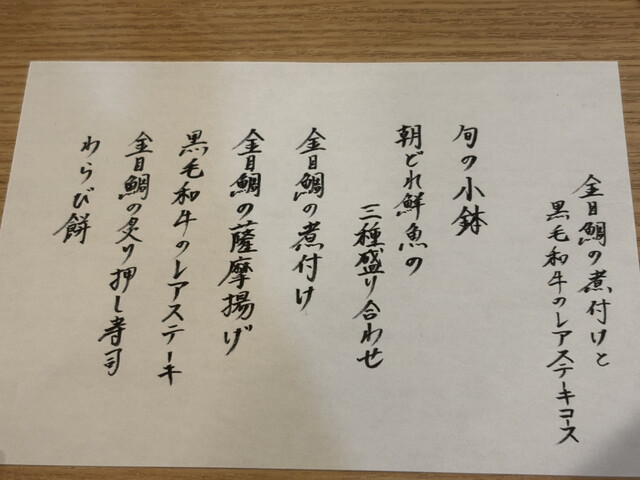 金目鯛の煮付けと
黒毛和牛のレアステーキコース
旬の小鉢
朝どれ鮮魚の
三種盛り合わせ
金目鯛の煮付け
金目鯛の薩摩揚げ
黒毛和牛のレアステーキ
金目鯛の炙り押し寿司
わらび餅